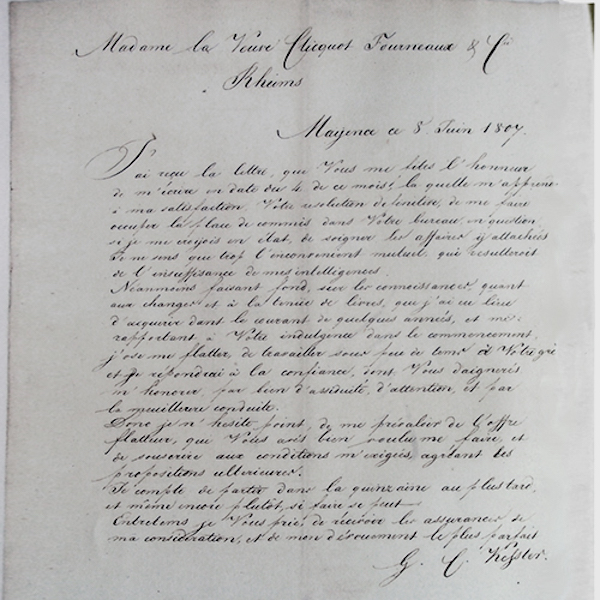 Madame la Veuve Clicquot Fourneaux & Cie
Rheims
Mayence ce 8. Juin 1807.
J'ai reçu la lettre, que Vous me fites l'honneur
de m'écrire en date du 4. de ce mois, la quelle m'apprend
à ma satisfaction, Votre resolution definitive, de me faire
occuper la place de commis dans Votre bureau en question,
si je me croyois en état, de soigner les affaires y attachées
Je ne sens que trop l'inconvenient mutuel, qui resulteroit
de l'insuffisance de mes intelligences.
Néanmoins faisant fond, sur les connaissances, quant
aux changes et à la tenue de livres, que j'ai eu lieu
d'acquerir dans le courant de quelques années, et me
rapportant à Votre indulgence dans le commencement,
j'ose me flatter, de travailler sous peu de tems à Votre gré
et je répondrai à la confiance, dont Vous daignerés
m'honorer, par bien d'assiduité, d'attention, et par
la meuilleure conduite.
Donc je n'hesite point, de me prévaloir de l'offre
flatteur, que Vous avés bien voulu me faire, et
de souscrire aux conditions m'exigées, agréant des
propositions ulterieures.
Je compte de partir dans la quinzaine au plus tard,
et même encore plutôt, si faire se peut
Entretems je Vous prie, de recevoir les assurances de
ma considération, et de mon dévouement le plus parfait
G. C. Kessler.